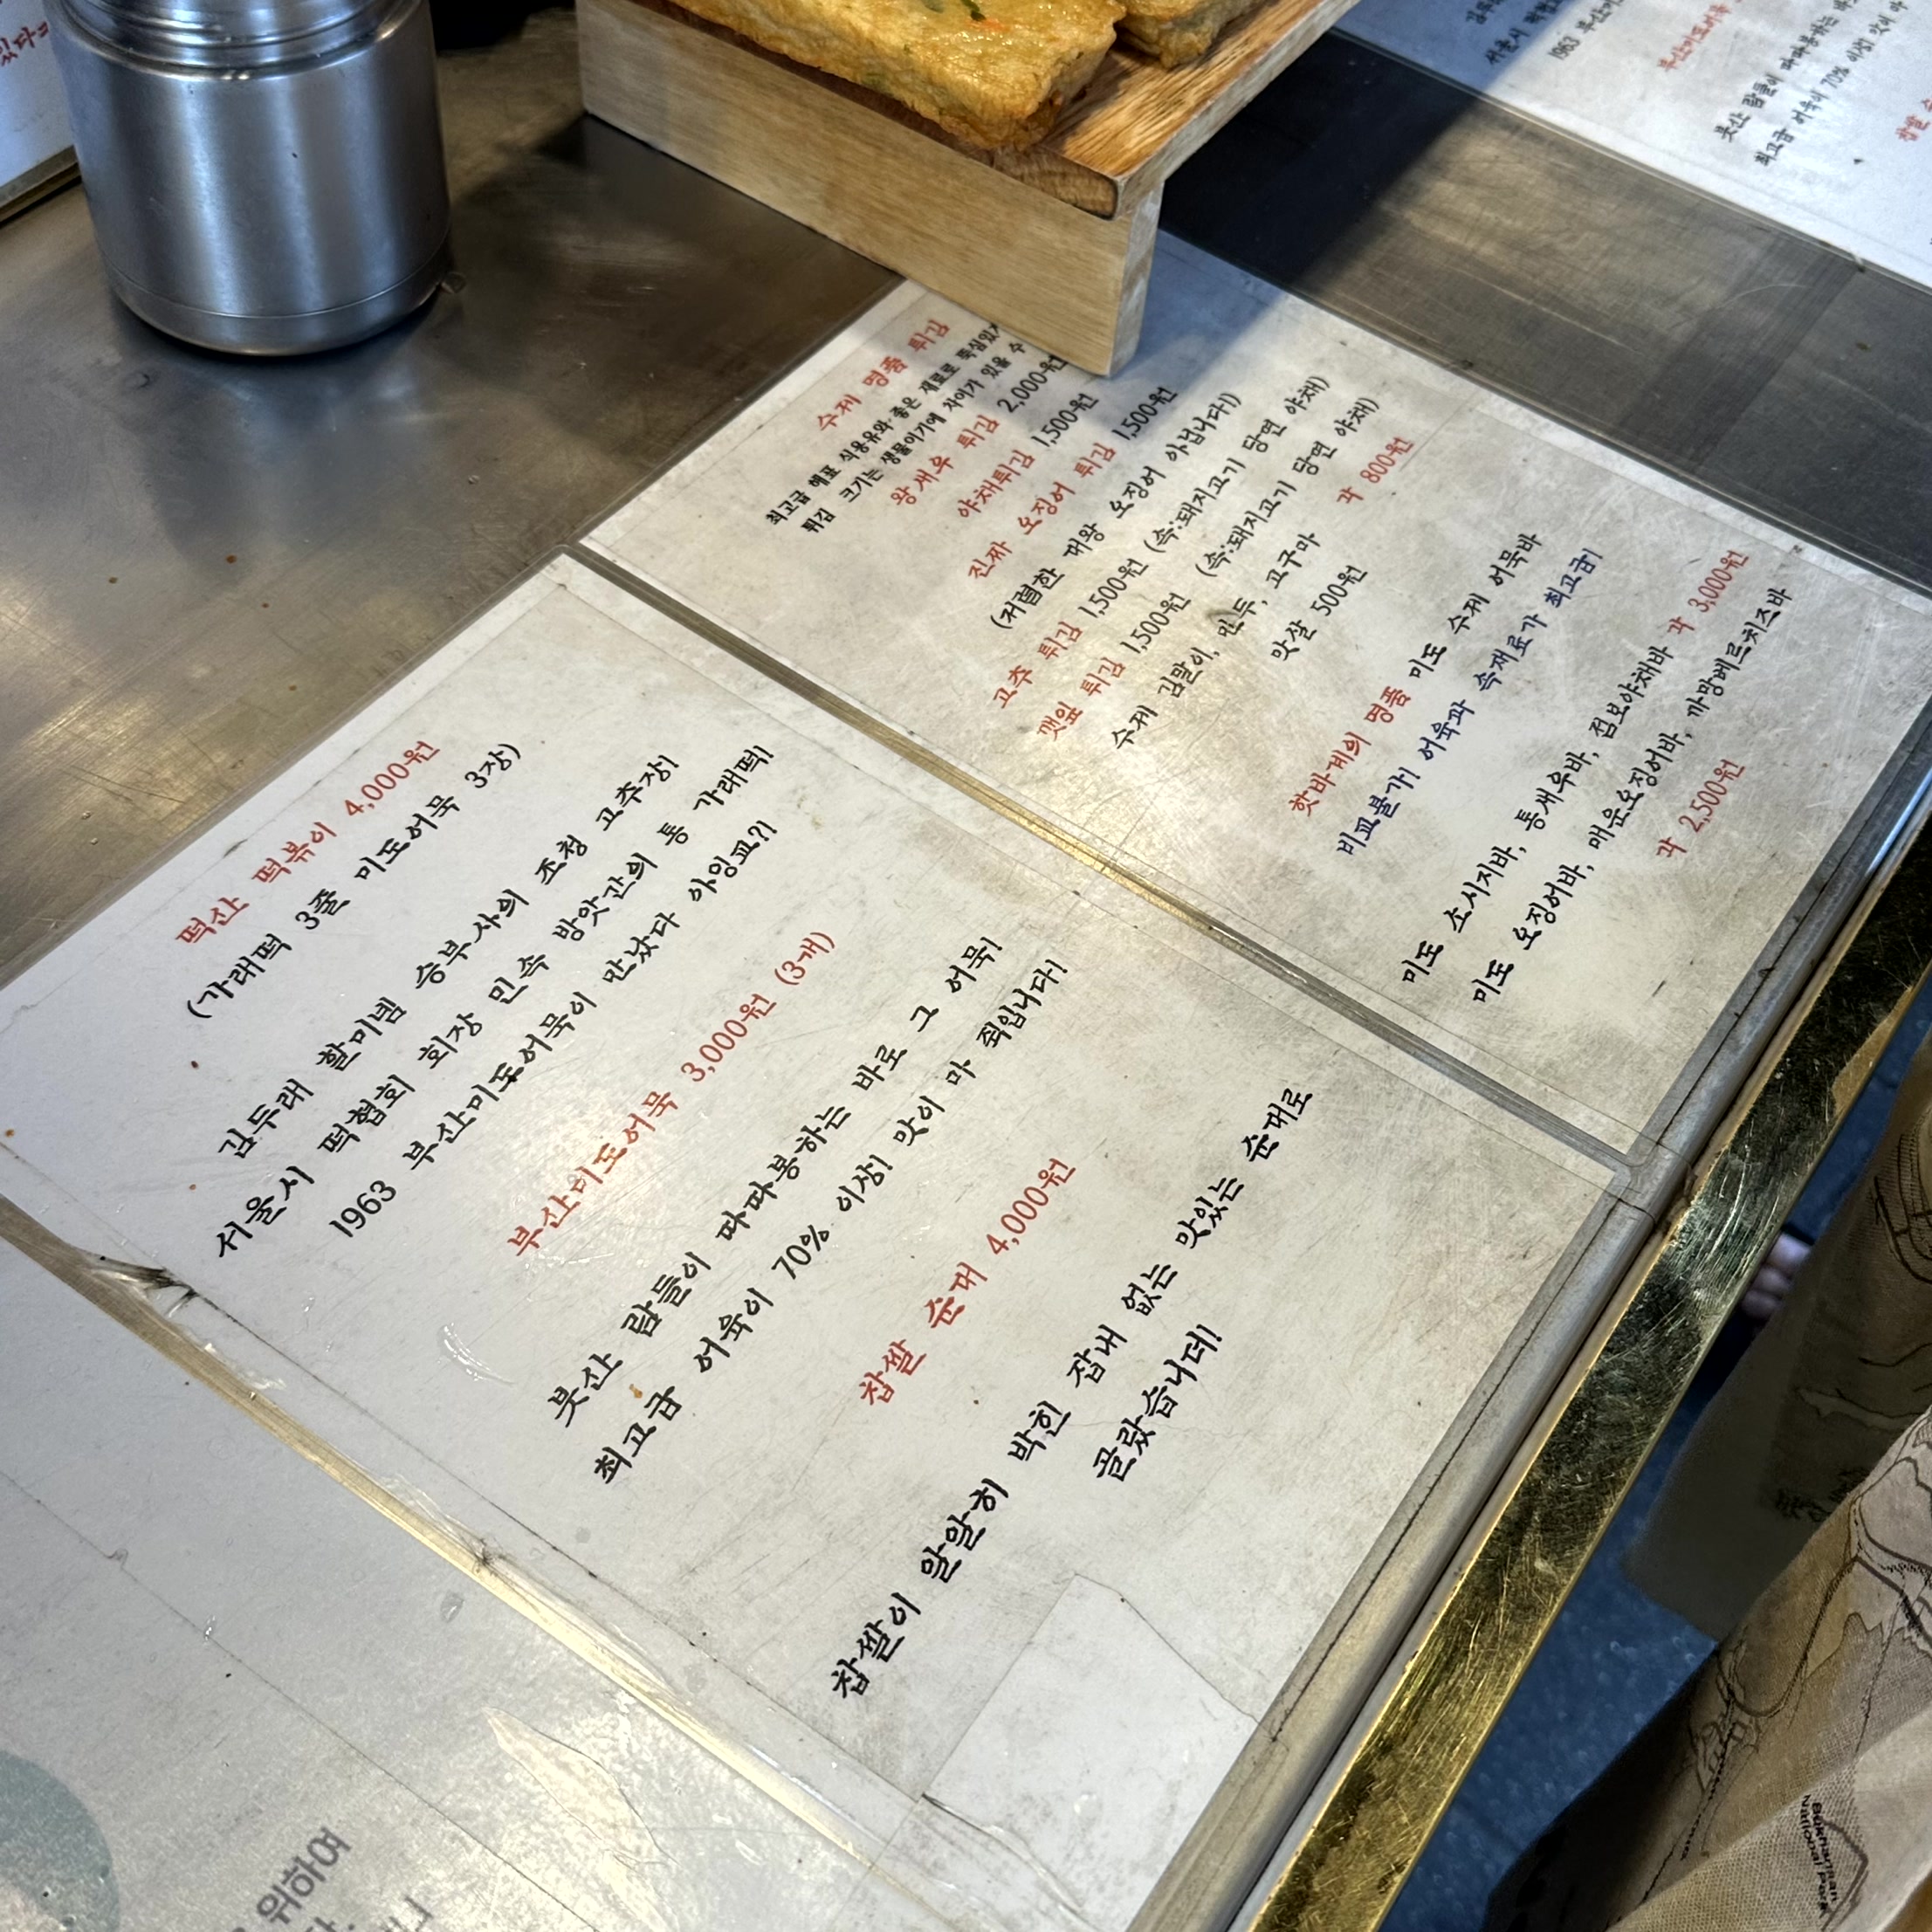 떡산 떡볶이 4,000원
(가래떡 3줄 미도어묵 3장)
김두래 할미넴 승부사의 조청 고추장!
서울시 떡협회 회장 민속 방앗간의 통 가래떡!
1963 부산미도어묵이 만났다 아잉교?!
부산미도어묵 3,000원 (3개)
븟산 람들이 따따봉하는 바로 그 어묵!
최고급 어육이 70% 이상! 맛이 마 쥑입니다!
찹쌀 순대 4,000원
찹쌀이 알알히 박힌 잡내 없는 맛있는 순대로
골랐습니데!
수제 명품 튀김
최고급 해표 식용유와 좋은 재료로
튀김 크기는 생물이기에 차이가 있을 수
왕새우 튀김 2,000원
야채튀김 1,500원
진짜 오징어 튀김 1,500원
(저렴한 대왕 오징어 아닙니다!)
고추 튀김 1,500원 (속:돼지고기 당면 야채)
깻잎 튀김 1,500원 (속:돼지고기 당면 야채)
수제 김말이, 만두, 고구마 각 800원
맛살 500원
핫바계의 명품 미도 수제 어묵바
비교불가! 어육과 속재료가 최고급!
미도 소시지바, 통새우바, 점보야채바 각 3,000원
미도 오징어바, 매운오징어바, 까망베르치즈바
각 2,500원
1963
븟산 람들이 따따봉하는
최고급 어육이 70% 이상! 맛이 마
위하여
Bukhansan
National Park